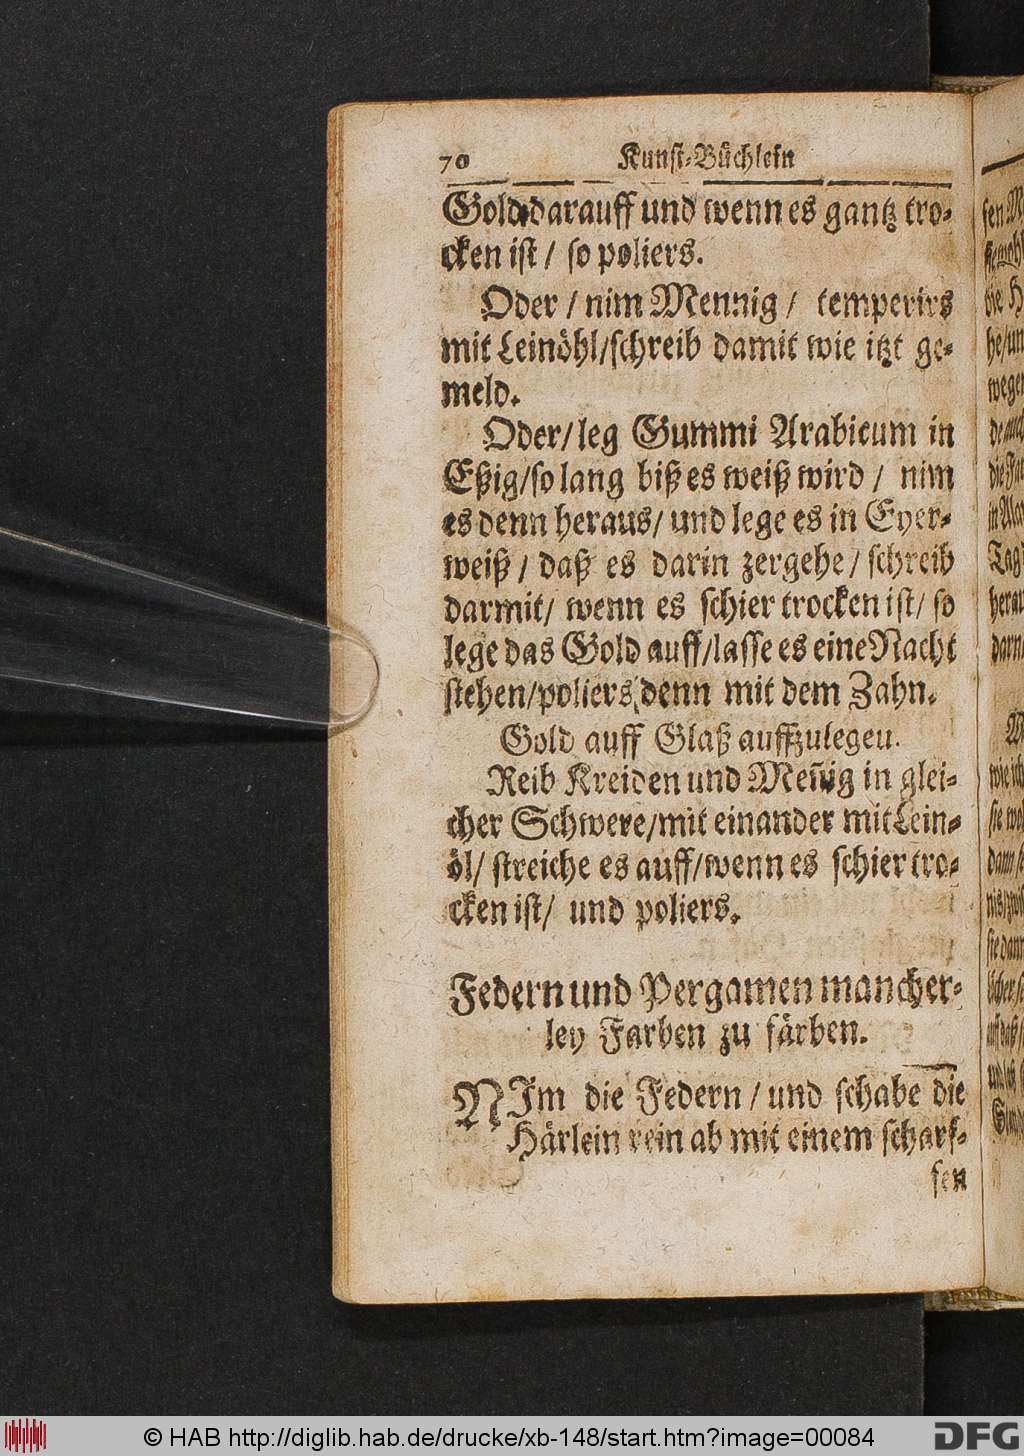 70 Kunst-Büchlein
Gold darauff und wenn es gantz tro-
cken ist / so poliers.
Oder / nim Mennig / temperirs
mit Leinöhl/schreib damit wie itzt ge-
meld.
Oder/ leg Gummi Arabicum in
Eßig/so lang biß es weiß wird / nim
es denn heraus/ und lege es in Eyer-
weiß / daß es darin zergehe / schreib
darmit/ wenn es schier trocken ist/ so
lege das Gold auff/lasse es eine Nacht
stehen/poliers denn mit dem Zahn.
Gold auff Glaß auffzulegen.
Reib Kreiden und Men̄ig in glei-
cher Schwere/mit einander mit Lein-
öl/ streiche es auff/wenn es schier tro-
cken ist/ und poliers.
Federn und Pergamen mancher-
ley Farben zu färben.
NIm die Federn / und schabe die
Härlein rein ab mit einem scharf-
fen
© HAB http://diglib.hab.de/drucke/xb-148/start.htm?image=00084
DFG